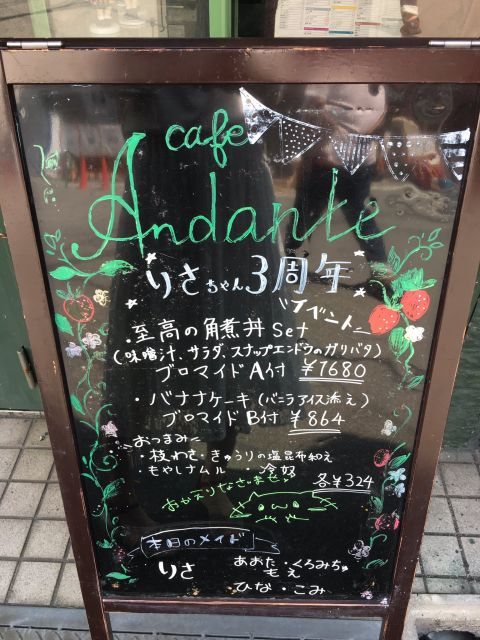 cafe
Andante
りさちゃん3周年
イベント
・至高の角煮丼 set
(味噌汁、サラダ、スナップエンドウのガリバタ)
ブロマイドA付 ¥1680
・バナナケーキ(バニラアイス添え)
ブロマイドB付 ¥864
おつまみ
・枝わさ・きゅうりの塩昆布和え
・もやしナムル ・冷奴
各¥324
おかえりなさいませ
本日のメイド
りさ
あおた・くろみちゅ
もえ
ひな・こみ